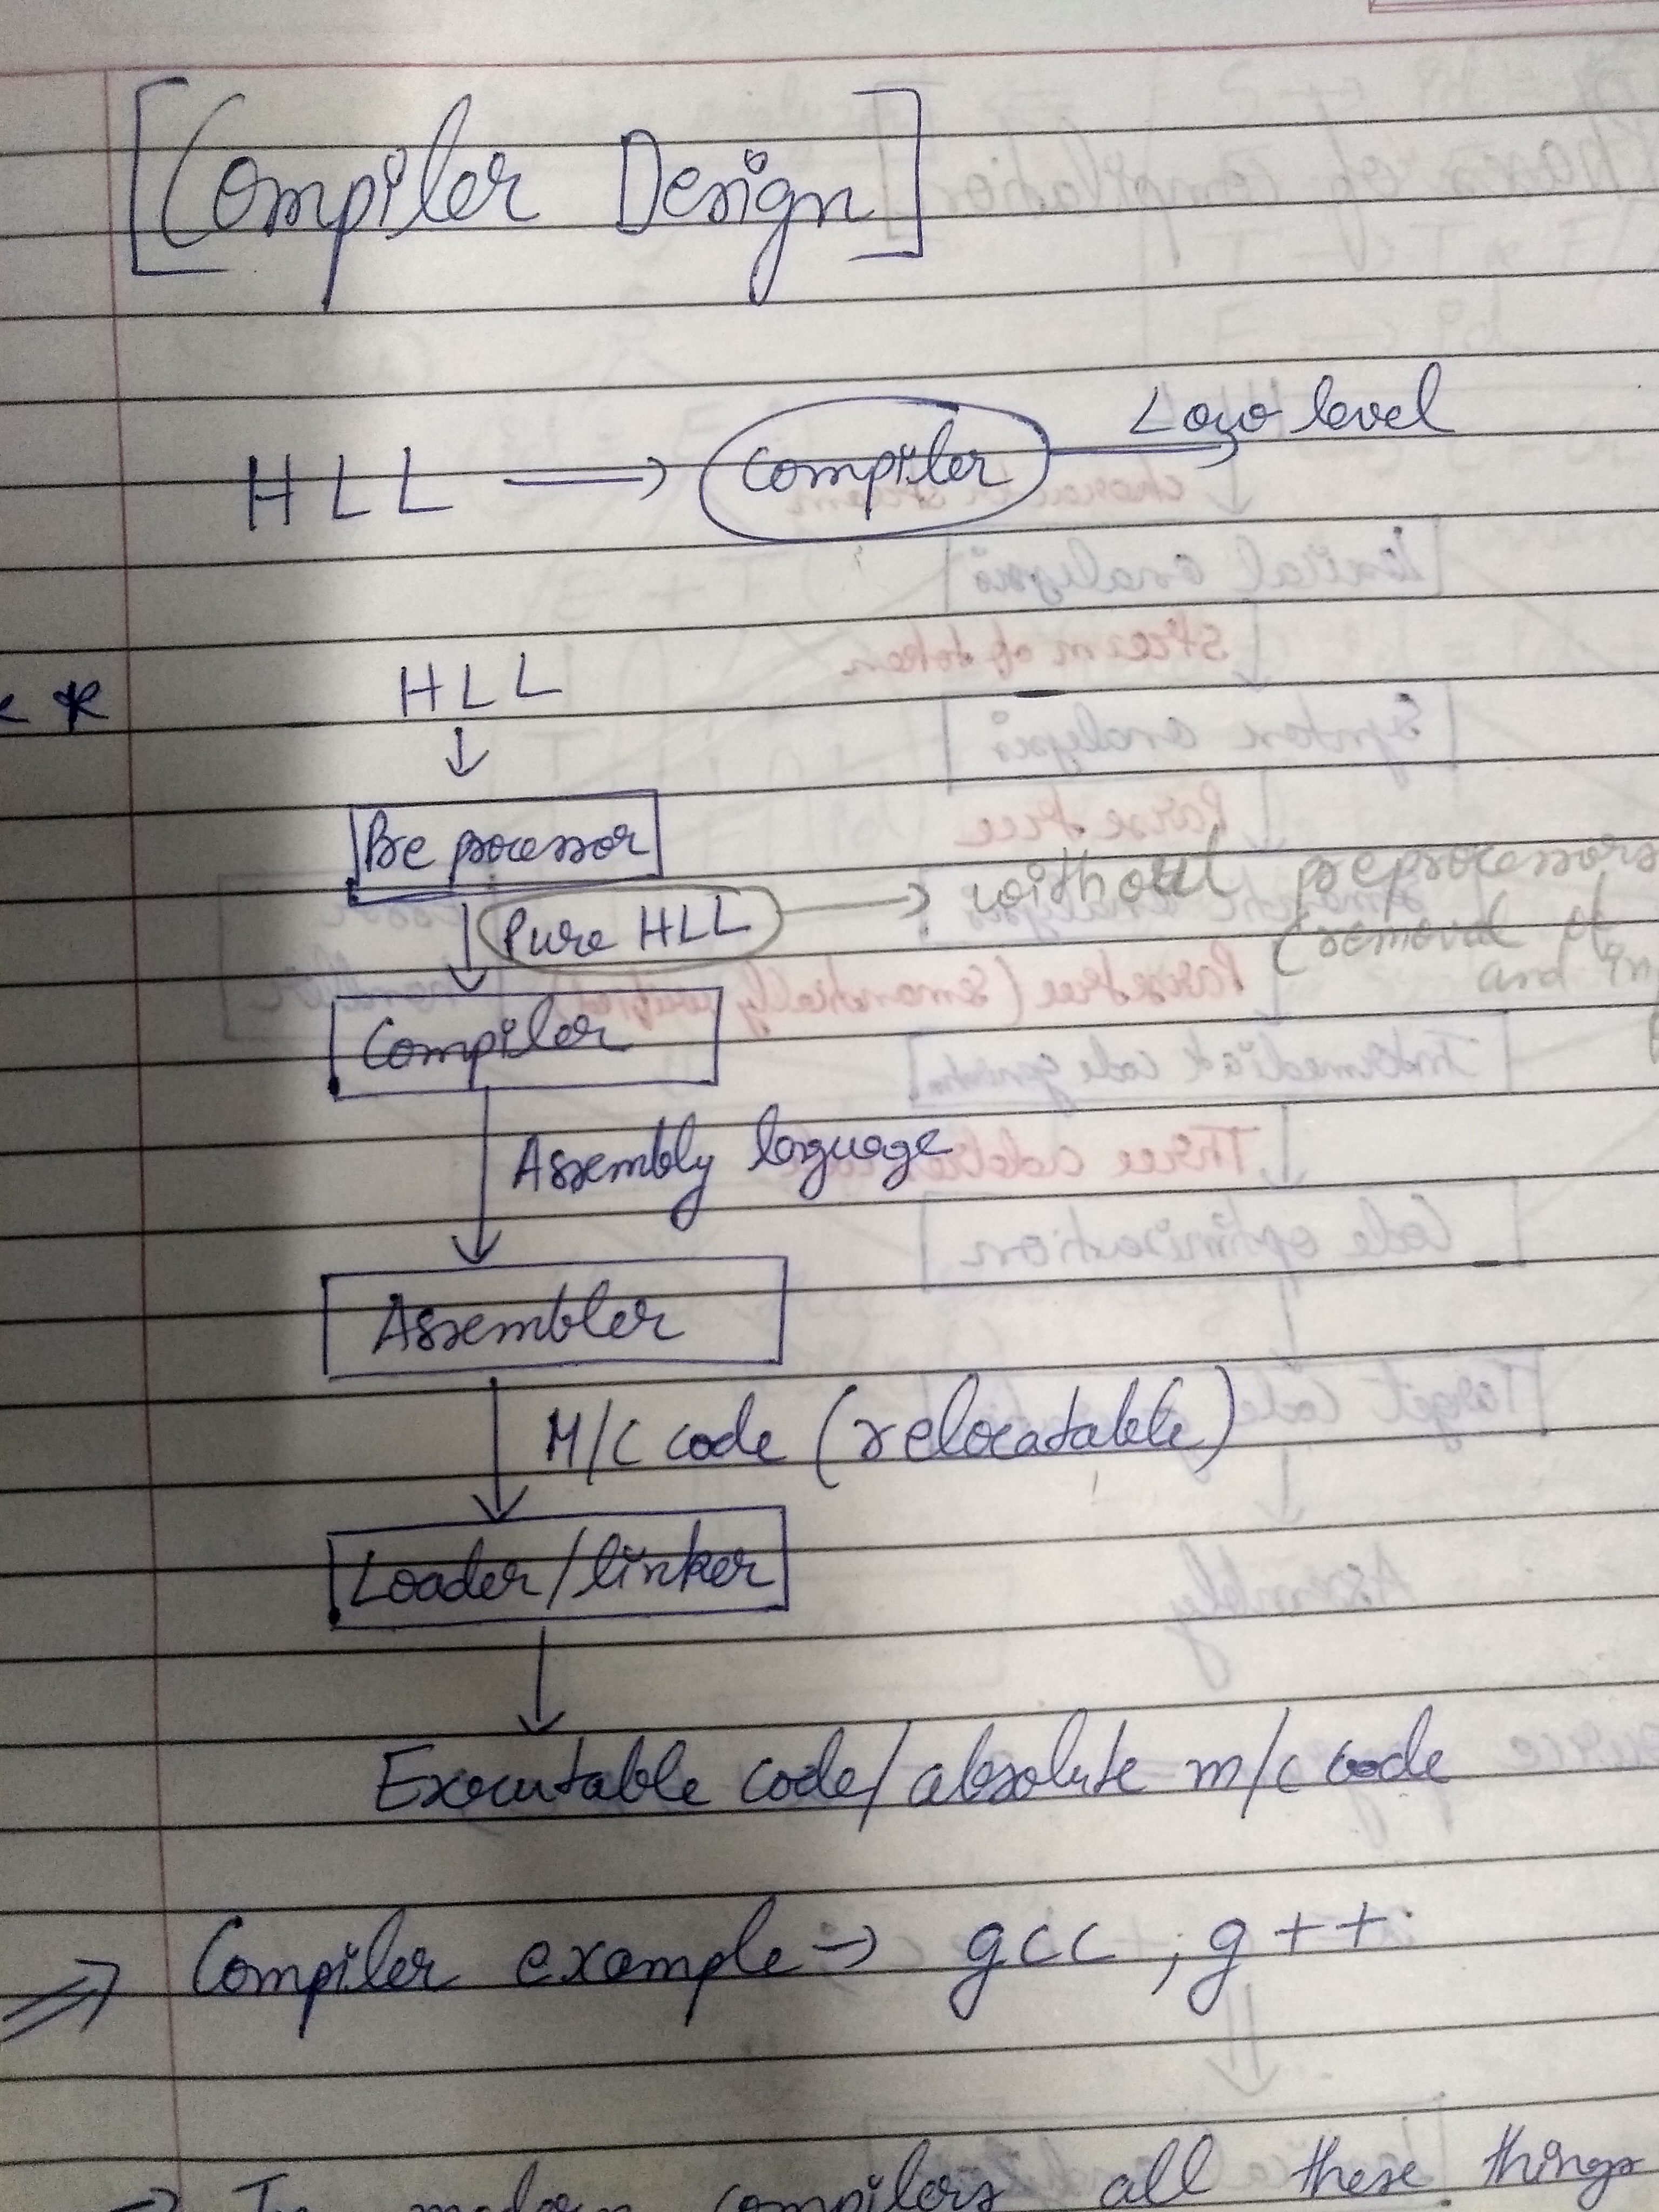 [Compiler Design]
HLL ⟹ Compiler ⟹ Low level
**
HLL
↓
Pre processor
↓ Pure HLL → without preprocessors
(removal of
and in
Compiler
Assembly language
Assembler
M/C code (relocatable)
Loader/linker
Executable code/absolute m/c code
⇒ Compiler example → gcc, g++
→ In modern compilers all these things